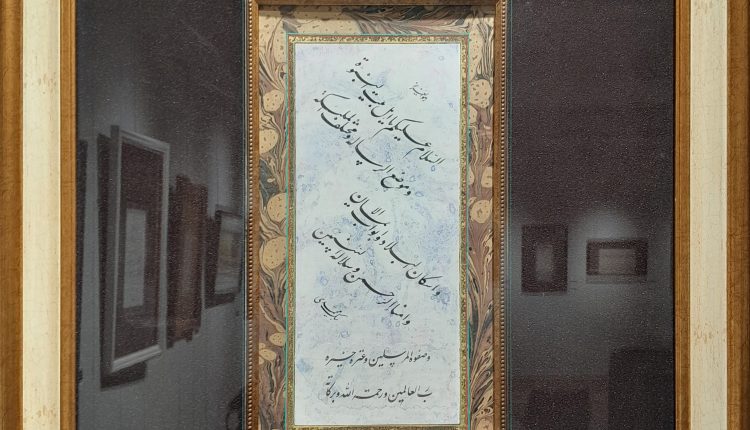 السلام علیکم یا اهل بیت النبوة
و موضع الرسالة و مختلف الملائکة
و ارکان البلاد و ابواب الایمان
و امناء الرحمن و سلالة النبیین
و صفوة المرسلین و عترة خیرة
رب العالمین و رحمة الله و برکاته